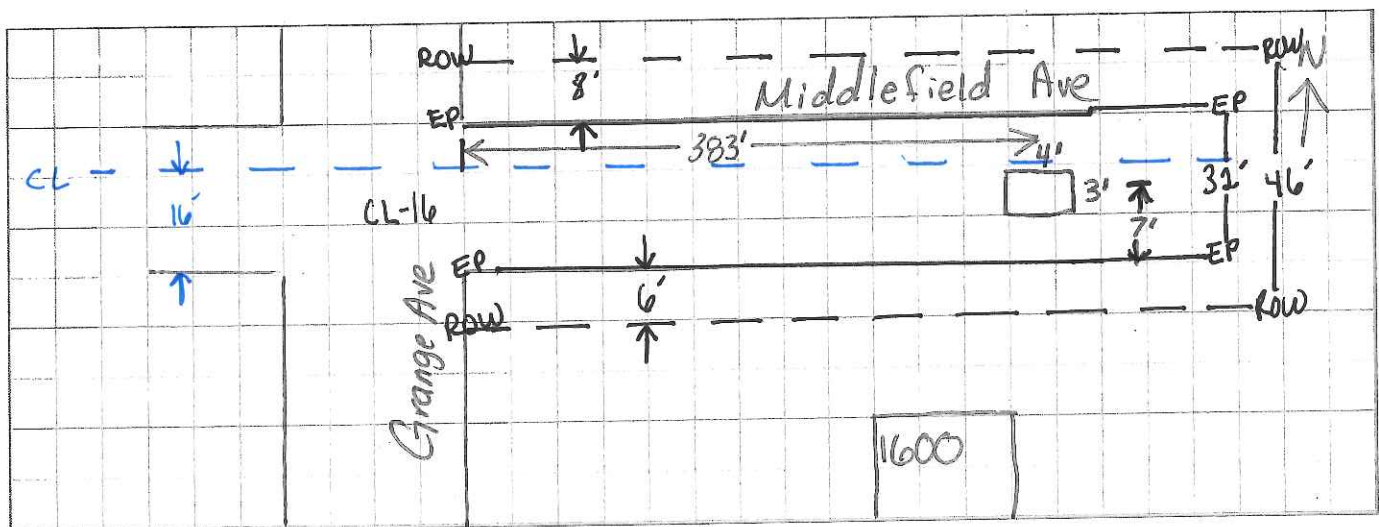 ROW
8'
ROW
N
Middlefield Ave
EP
EP
383'
4'
CL
16'
CL-16
3'
7'
32'
46'
EP
EP
6'
ROW
ROW
Grange Ave
1600